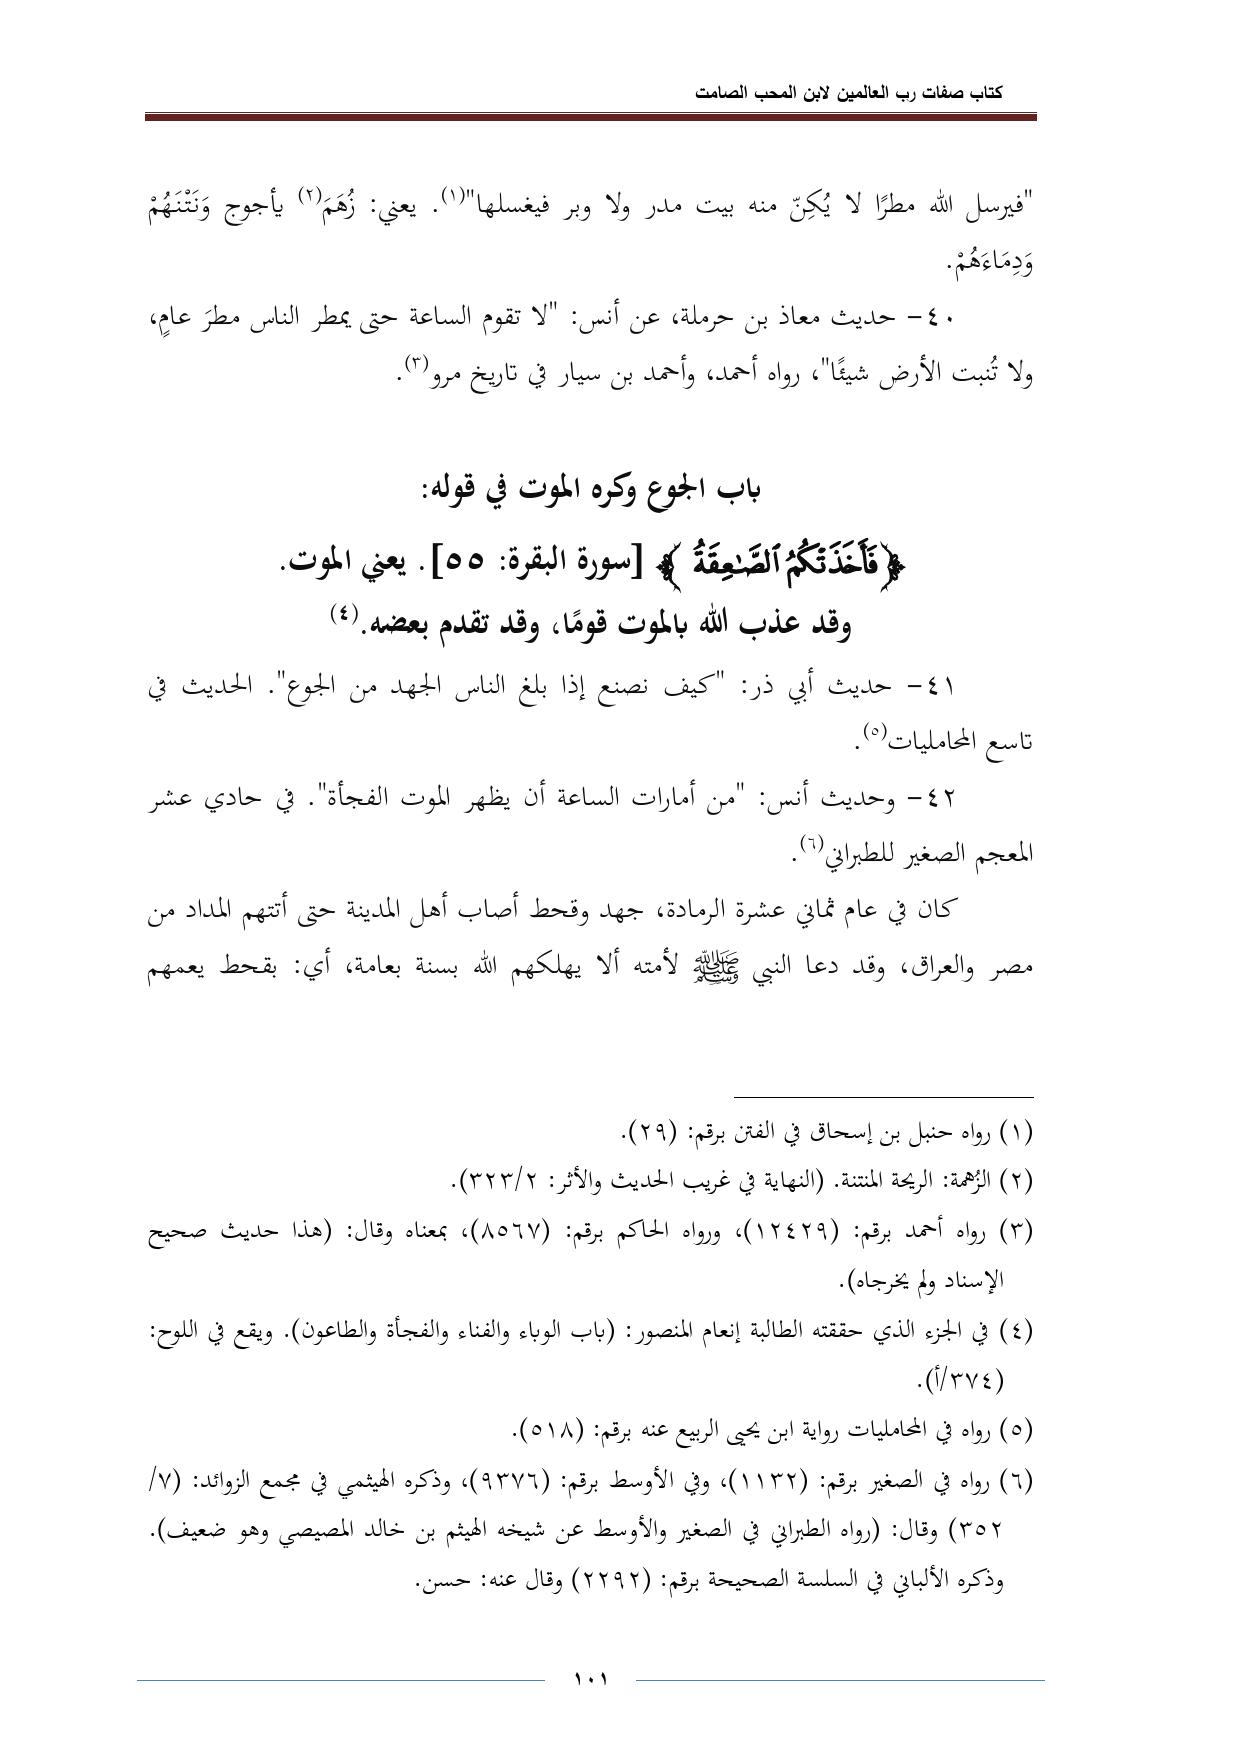 كتاب صفات رب العالمين لابن المحب الصامت
"فيرسل الله مطرًا لا يُكِنّ منه بيت مدر ولا وبر فيغسلها"(١). يعني: زُهَمَ(٢) يأجوج وَنَتْنَهُمْ
وَدِمَاءَهُمْ.
٤٠- حديث معاذ بن حرملة، عن أنس: "لا تقوم الساعة حتى يمطر الناس مطرَ عامٍ،
ولا تُنبت الأرض شيئًا"، رواه أحمد، وأحمد بن سيار في تاريخ مرو(٣).
باب الجوع وكره الموت في قوله:
﴿فَأَخَذَتْكُمُ ٱلصَّٰعِقَةُ﴾ [سورة البقرة: ٥٥]. يعني الموت.
وقد عذب الله بالموت قومًا، وقد تقدم بعضه.(٤)
٤١- حديث أبي ذر: "كيف نصنع إذا بلغ الناس الجهد من الجوع". الحديث في
تاسع المحامليات(٥).
٤٢- وحديث أنس: "من أمارات الساعة أن يظهر الموت الفجأة". في حادي عشر
المعجم الصغير للطبراني(٦).
كان في عام ثماني عشرة الرمادة، جهد وقحط أصاب أهل المدينة حتى أتتهم المداد من
مصر والعراق، وقد دعا النبي ﷺ لأمته ألا يهلكهم الله بسنة بعامة، أي: بقحط يعمهم
(١) رواه حنبل بن إسحاق في الفتن برقم: (٢٩).
(٢) الزُهمة: الريحة المنتنة. (النهاية في غريب الحديث والأثر: ٣٢٣/٢).
(٣) رواه أحمد برقم: (١٢٤٢٩)، ورواه الحاكم برقم: (٨٥٦٧)، بمعناه وقال: (هذا حديث صحيح
الإسناد ولم يخرجاه).
(٤) في الجزء الذي حققته الطالبة إنعام المنصور: (باب الوباء والفناء والفجأة والطاعون). ويقع في اللوح:
(٣٧٤/أ).
(٥) رواه في المحامليات رواية ابن يحيى الربيع عنه برقم: (٥١٨).
(٦) رواه في الصغير برقم: (١١٣٢)، وفي الأوسط برقم: (٩٣٧٦)، وذكره الهيثمي في مجمع الزوائد: (٧/
٣٥٢) وقال: (رواه الطبراني في الصغير والأوسط عن شيخه الهيثم بن خالد المصيصي وهو ضعيف).
وذكره الألباني في السلسة الصحيحة برقم: (٢٢٩٢) وقال عنه: حسن.
١٠١